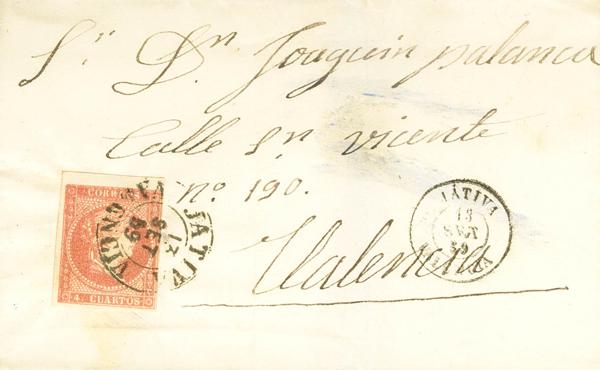 Sr. Dn. Joaquin palanca
Calle Sn vicente
nº. 190.
Valencia
CORREOS
4 CUARTOS
JATIVA
SET
59
VALENCIA
JÁTIVA
13
SET
59
VALENCIA